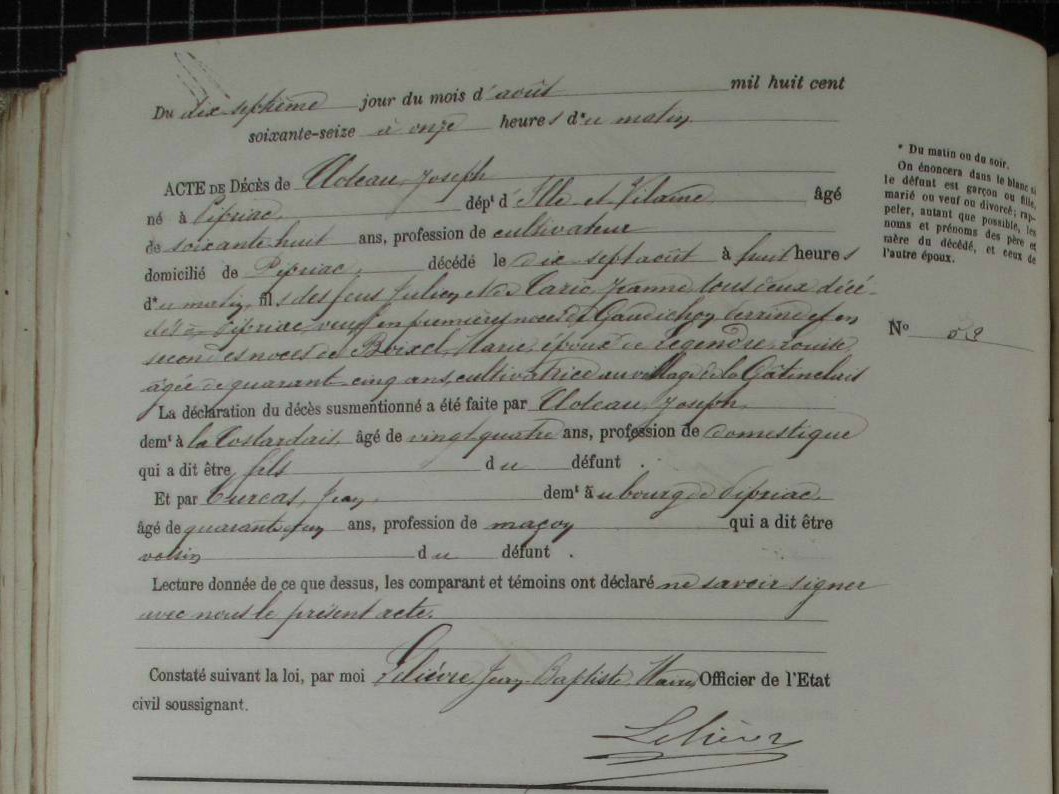 Du dix septième jour du mois d'août mil huit cent
soixante-seize à onze heures d*u matin
ACTE DE DÉCÈS de Joseph
né à Pipriac dépt d'Ille et Vilaine âgé
de soixante huit ans, profession de cultivateur
domicilié de Pipriac, décédé le dix sept août à huit heures
d*u matin, fils des feus Julien et de Jeanne tous deux décé-
dés à Pipriac, veuf en premières noces de Perrine et en
secondes noces de Marie, époux de Legendre Louise
âgée de quarante cinq ans, cultivatrice au village de la Gâtinelais
La déclaration du décès susmentionné a été faite par Joseph,
demt à la âgé de vingt quatre ans, profession de domestique
qui a dit être fils du défunt.
Et par Jean, demt au bourg de Pipriac,
âgé de quarante un ans, profession de maçon qui a dit être
voisin du défunt.
Lecture donnée de ce que dessus, les comparant et témoins ont déclaré ne savoir signer
avec nous le présent acte.
Constaté suivant la loi, par moi Lelièvre Jean Baptiste, Maire, Officier de l'Etat
civil soussignant.
Lelièvre
* Du matin ou du soir.
On énoncera dans le blanc si
le défunt est garçon ou fille,
marié ou veuf ou divorcé; rap-
peler, autant que possible, les
noms et prénoms des père et
mère du décédé, et ceux de
l'autre époux.
No